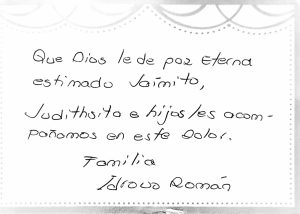 Que Dios le de paz Eterna
estimado Jaimito,
Judithsita e hijos les acom-
pañamos en este Dolor.
Familia
Idrovo Román